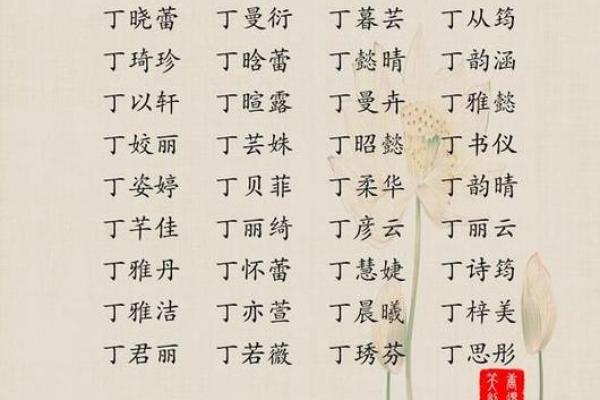 丁晓蕾 丁曼衍 丁暮芸 丁从筠
丁琦珍 丁晗蕾 丁懿晴 丁韵涵
丁以轩 丁暄露 丁曼卉 丁雅懿
丁姣丽 丁芸姝 丁昭懿 丁书仪
丁姿婷 丁贝菲 丁柔华 丁韵晴
丁芊佳 丁丽绮 丁彦云 丁丽云
丁雅丹 丁怀蕾 丁慧婕 丁诗筠
丁雅洁 丁亦萱 丁晨曦 丁梓美
丁君丽 丁若薇 丁琇芬 丁思彤